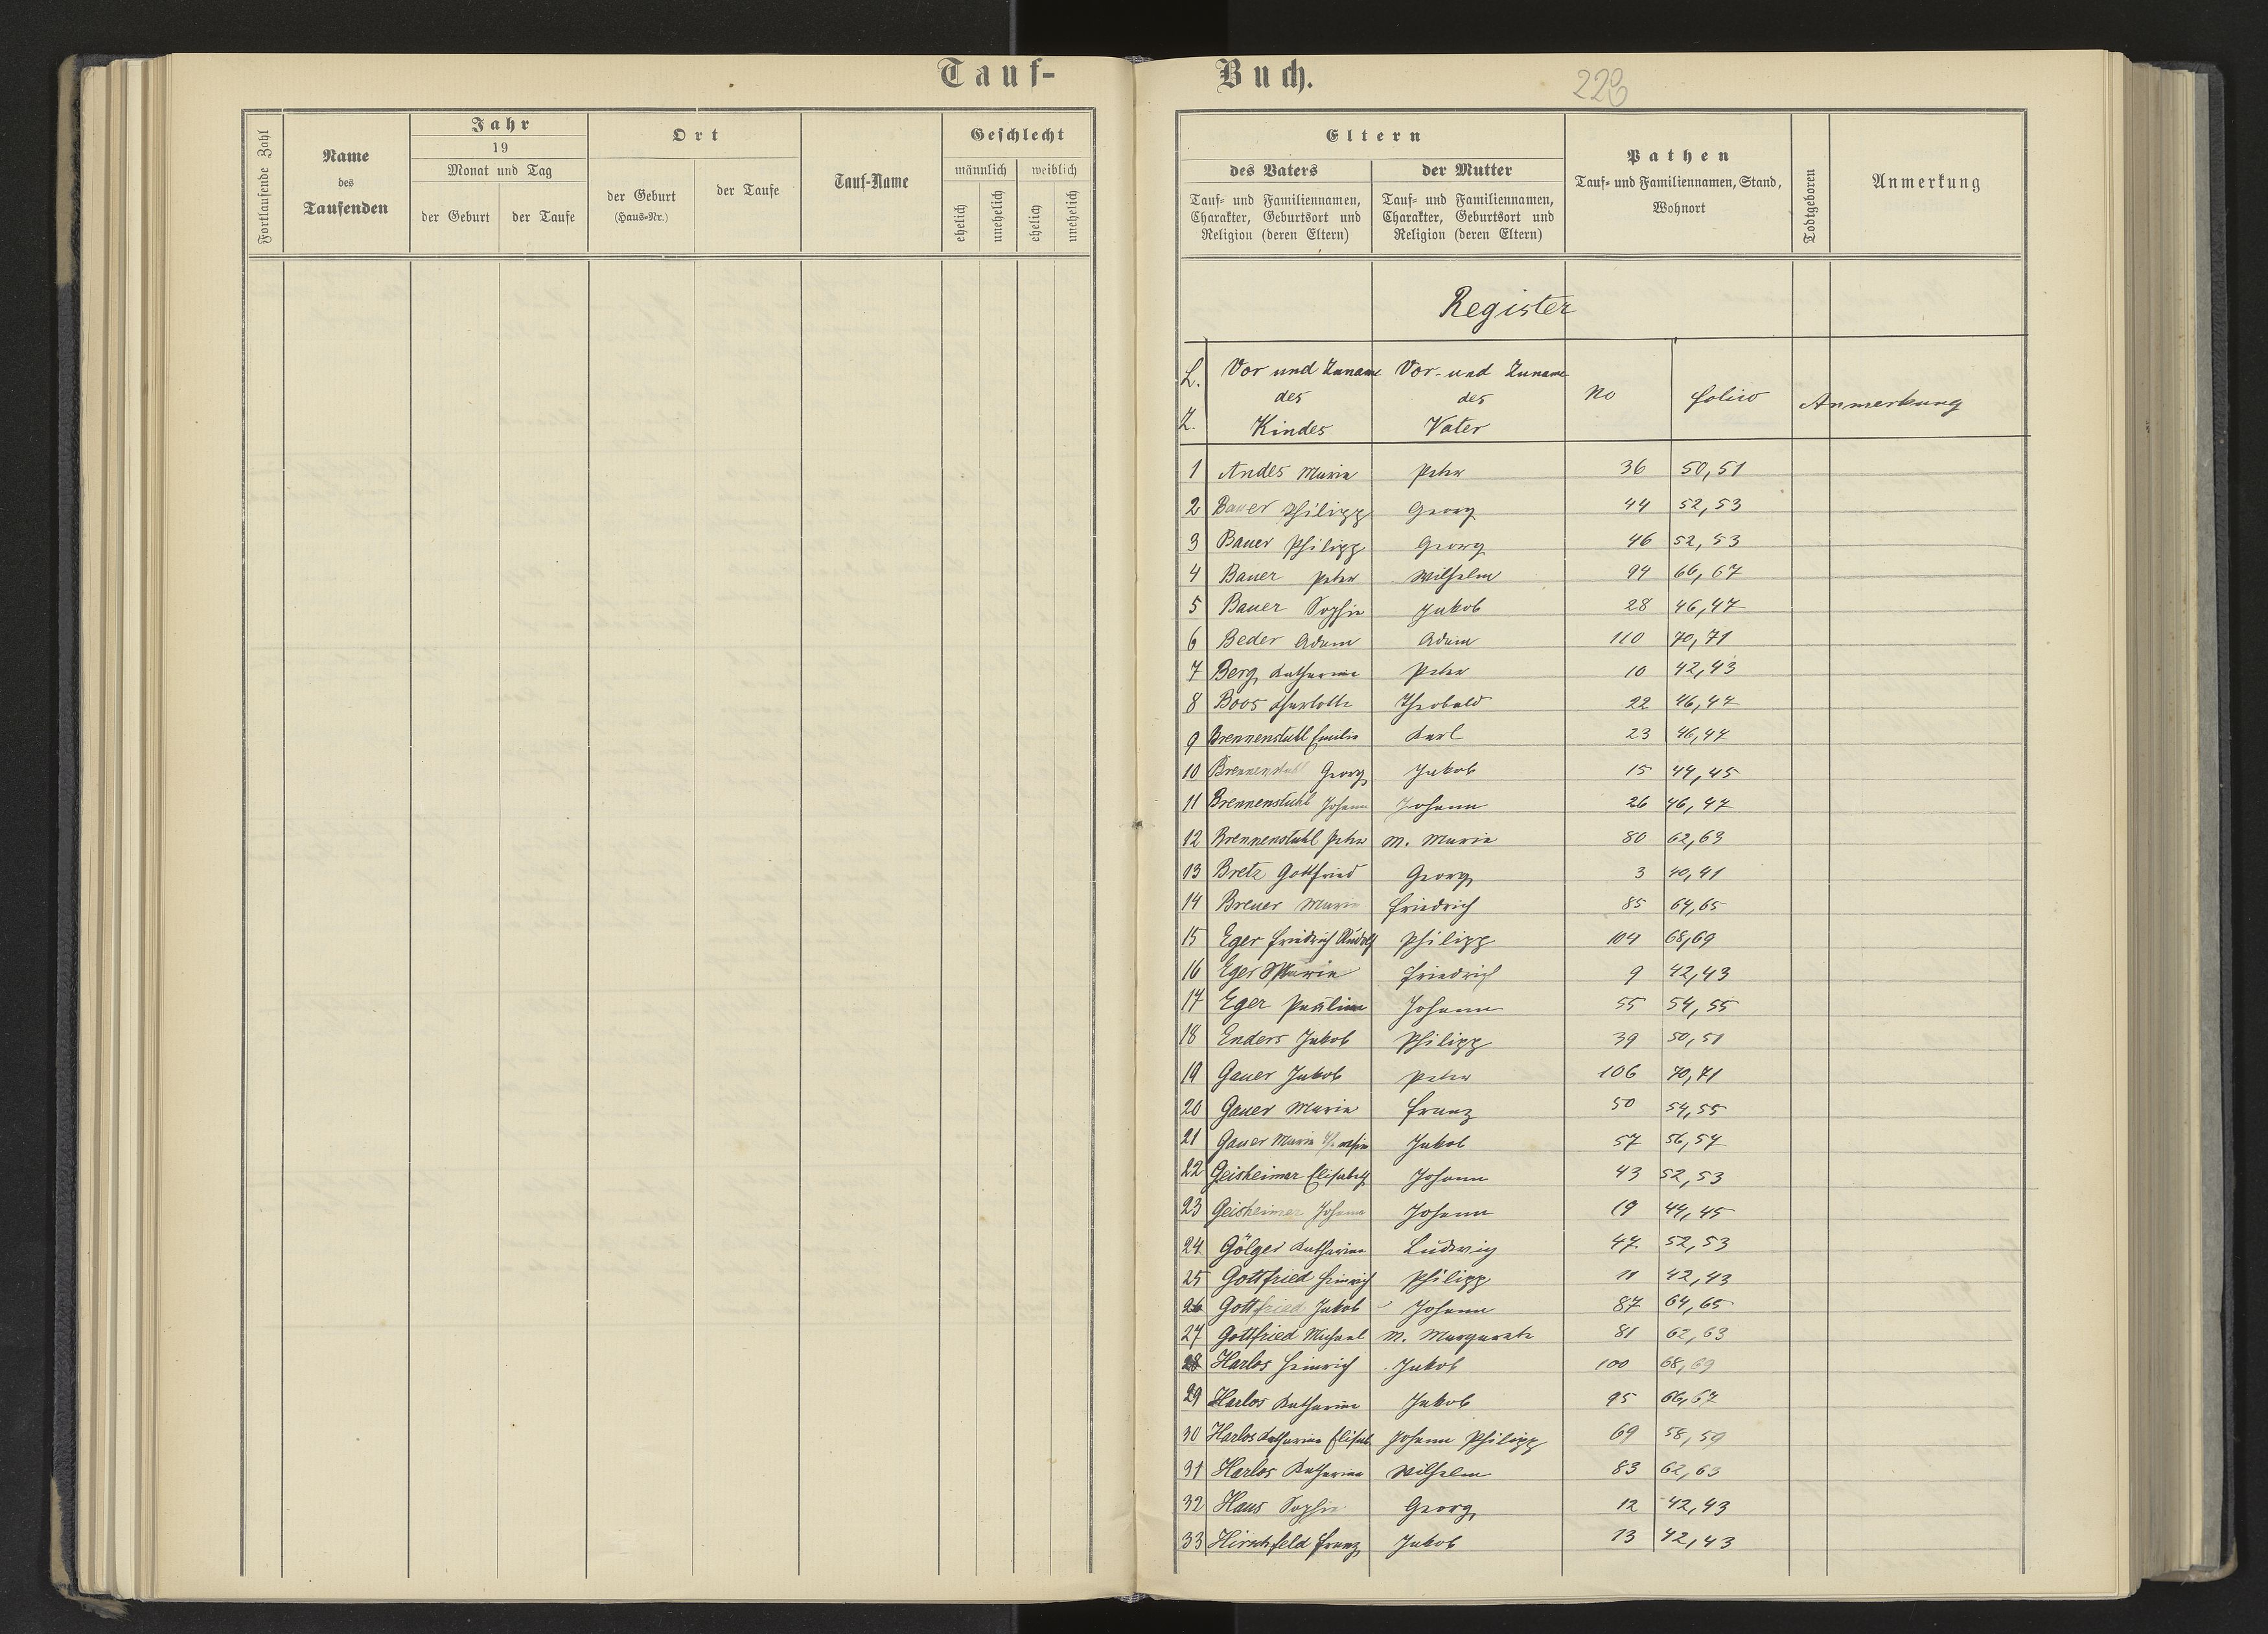 Tauf-
Fortlaufende Zahl
Name
des
Taufenden
Jahr
19
Monat und Tag
der Geburt
der Taufe
Ort
der Geburt
(Haus-Nr.)
der Taufe
Tauf-Name
Geschlecht
männlich
weiblich
ehelich
unehelich
ehelich
unehelich
Buch.
Eltern
des Vaters
Tauf- und Familiennamen,
Charakter, Geburtsort und
Religion (deren Eltern)
der Mutter
Tauf- und Familiennamen,
Charakter, Geburtsort und
Religion (deren Eltern)
Pathen
Tauf- und Familiennamen, Stand,
Wohnort
Todtgeboren
Anmerkung
Register
L. Z.
Vor und Zuname
des
Kindes
Vor- und Zuname
des
Vater
No
folio
Anmerkung
1 Andes Maria Peter 36 50,51
2 Bauer Philipp Georg 44 52,53
3 Bauer Philipp Georg 46 52,53
4 Bauer Peter Wilhelm 94 66,67
5 Bauer Sophie Jakob 28 46,47
6 Beder Adam Adam 110 70,71
7 Berg Katharina Peter 10 42,43
8 Boos Charlotte Theobald 22 46,47
9 Brennenstuhl Emilie Karl 23 46,47
10 Brennenstuhl Georg Jakob 15 44,45
11 Brennenstuhl Johann Johann 26 46,47
12 Brennenstuhl Peter M. Maria 80 62,63
13 Bretz Gottfried Georg 3 40,41
14 Breuer Maria Friedrich 85 64,65
15 Eger Friedrich Rudolf Philipp 104 68,69
16 Eger Maria Friedrich 9 42,43
17 Eger Paulina Johann 55 54,55
18 Enders Jakob Philipp 39 50,51
19 Gauer Jakob Peter 106 70,71
20 Gauer Maria Franz 50 54,55
21 Gauer Maria Jakob 57 56,57
22 Geisheimer Elisabeth Johann 43 52,53
23 Geisheimer Johann Johann 19 44,45
24 Gölger Katharina Ludwig 47 52,53
25 Gottfried Heinrich Philipp 11 42,43
26 Gottfried Jakob Johann 87 64,65
27 Gottfried Michael M. Margarete 81 62,63
28 Harlos Heinrich Jakob 100 68,69
29 Harlos Katharina Jakob 95 66,67
30 Harlos Katharina Elisab. Johann Philipp 69 58,59
31 Harlos Katharina Wilhelm 83 62,63
32 Haus Sophie Georg 12 42,43
33 Hirschfeld Franz Jakob 13 42,43